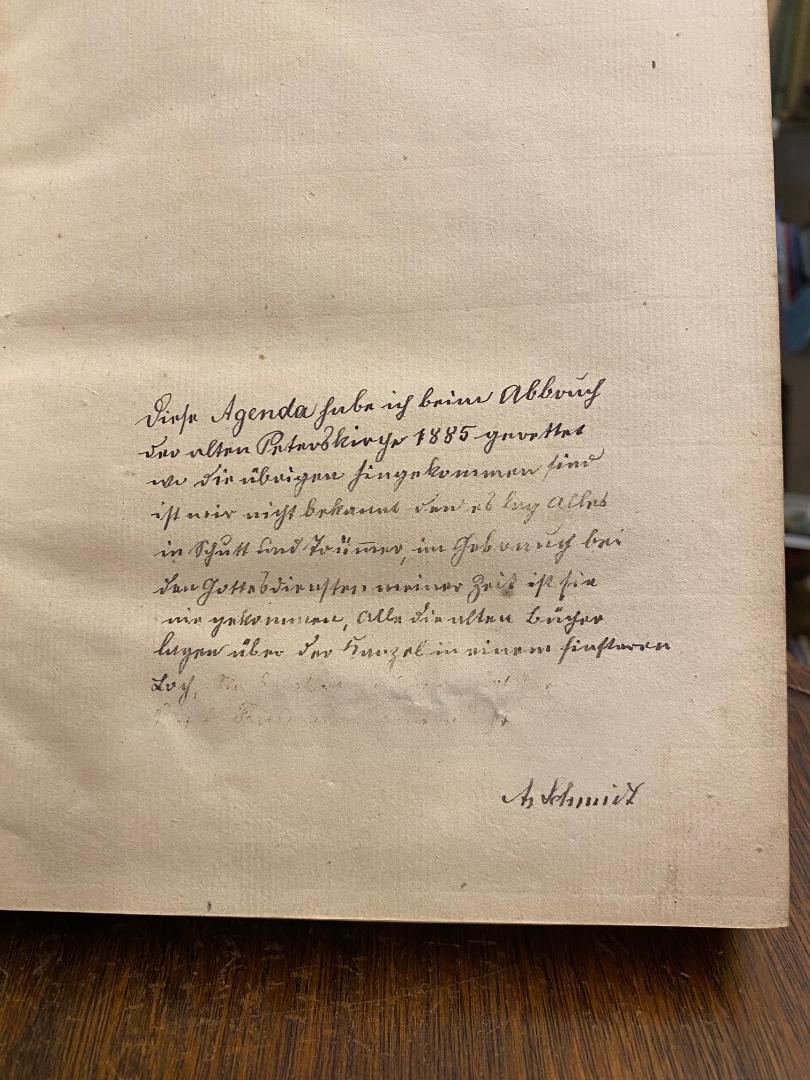 Diese Agenda habe ich beim Abbruch
der alten Peterskirche 1885 gerettet
wo die übrigen hingekommen sind
ist mir nicht bekannt den es lag Alles
in Schutt und Trümmer, im Gebrauch bei
den Gottesdiensten meiner Zeit ist sie
nie gekommen, Alle die alten Bücher
lagen über der Kanzel in einem finsteren
Loch,
A. Schmidt